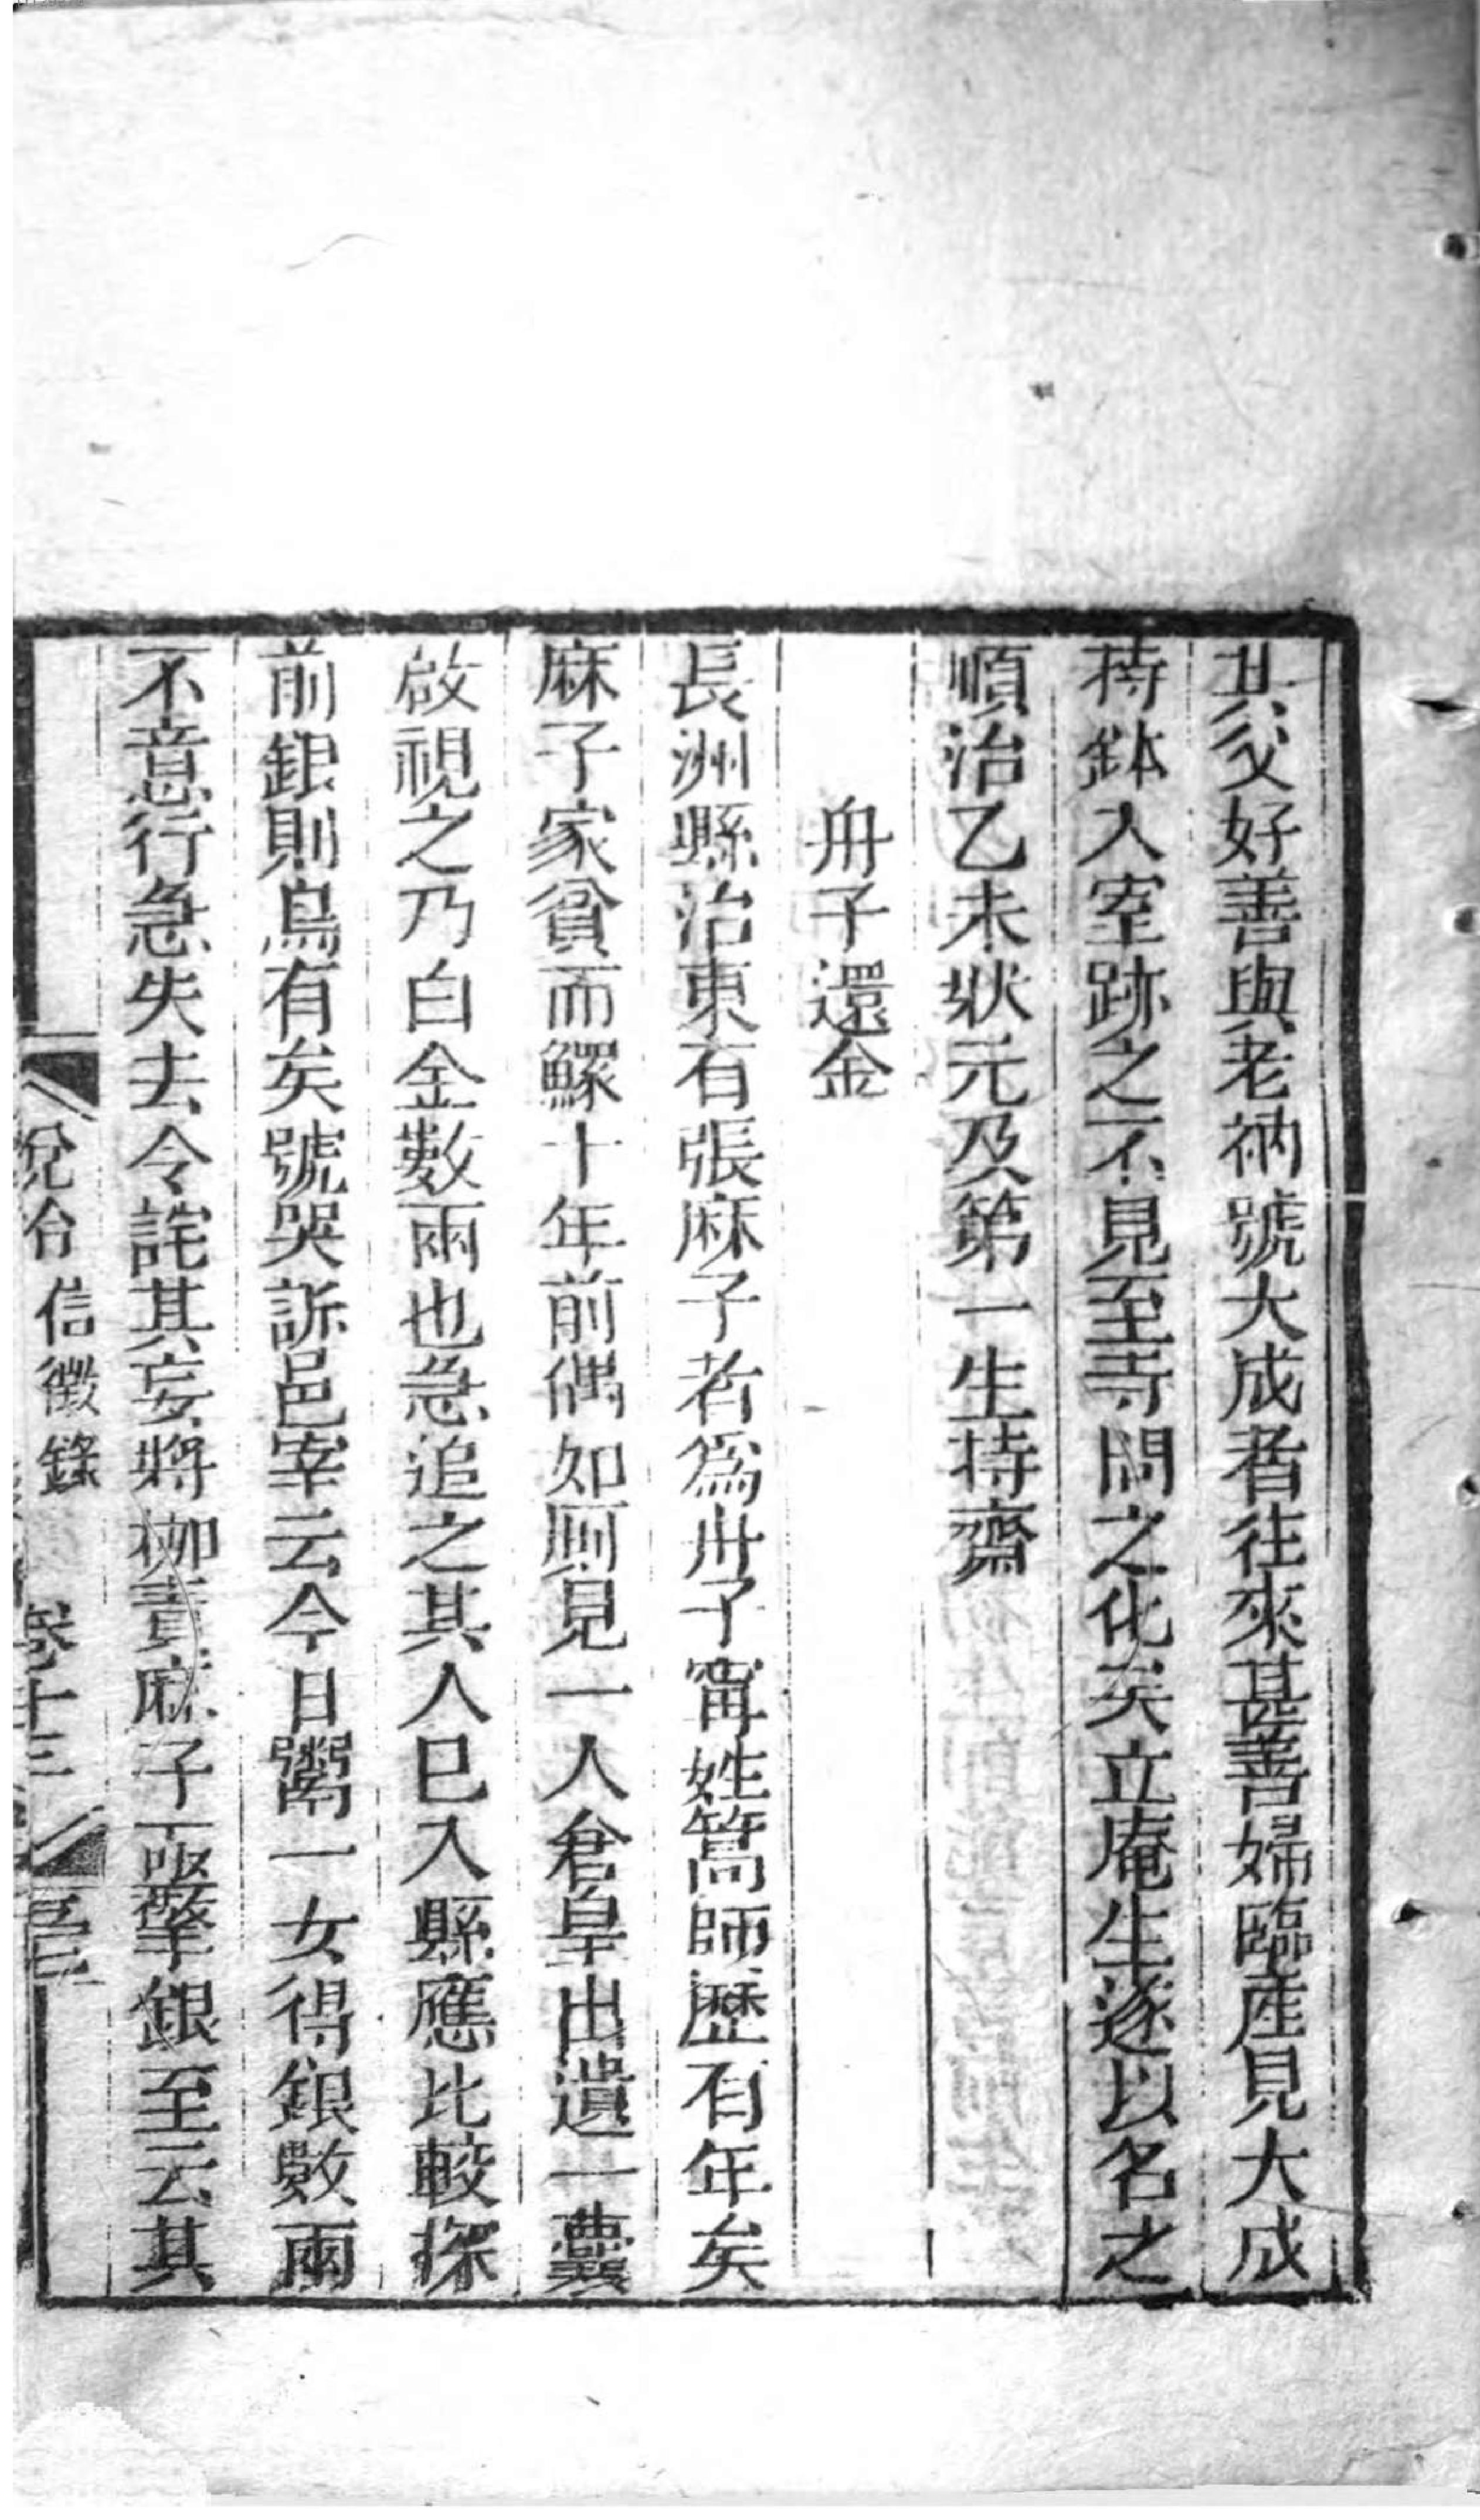 其父好善與老衲號大成者往來甚善婦臨產見大成
持鉢入室跡之不見至寺問之化矣立庵生遂以名之
順治乙未狀元及第一生持齋
舟子還金
長洲縣治東有張麻子者爲舟子甯姓篙師歷有年矣
麻子家貧而鰥十年前偶如厠見一人倉皇出遺一囊
啟視之乃白金數兩也急追之其人巳入縣應比較探
前銀則烏有矣號哭訴邑宰云今日鬻一女得銀數兩
不意行急失去令詫其妄將枷責麻子亟擎銀至云其
說鈴 信徵錄 卷十三